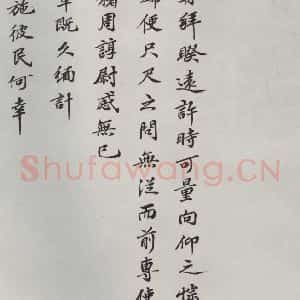 拜睽遠許時可量向仰之悰
便尺尺之問無從而前專使
周諄尉感無已
既久緬計
施彼民何幸
Shufawang.CN